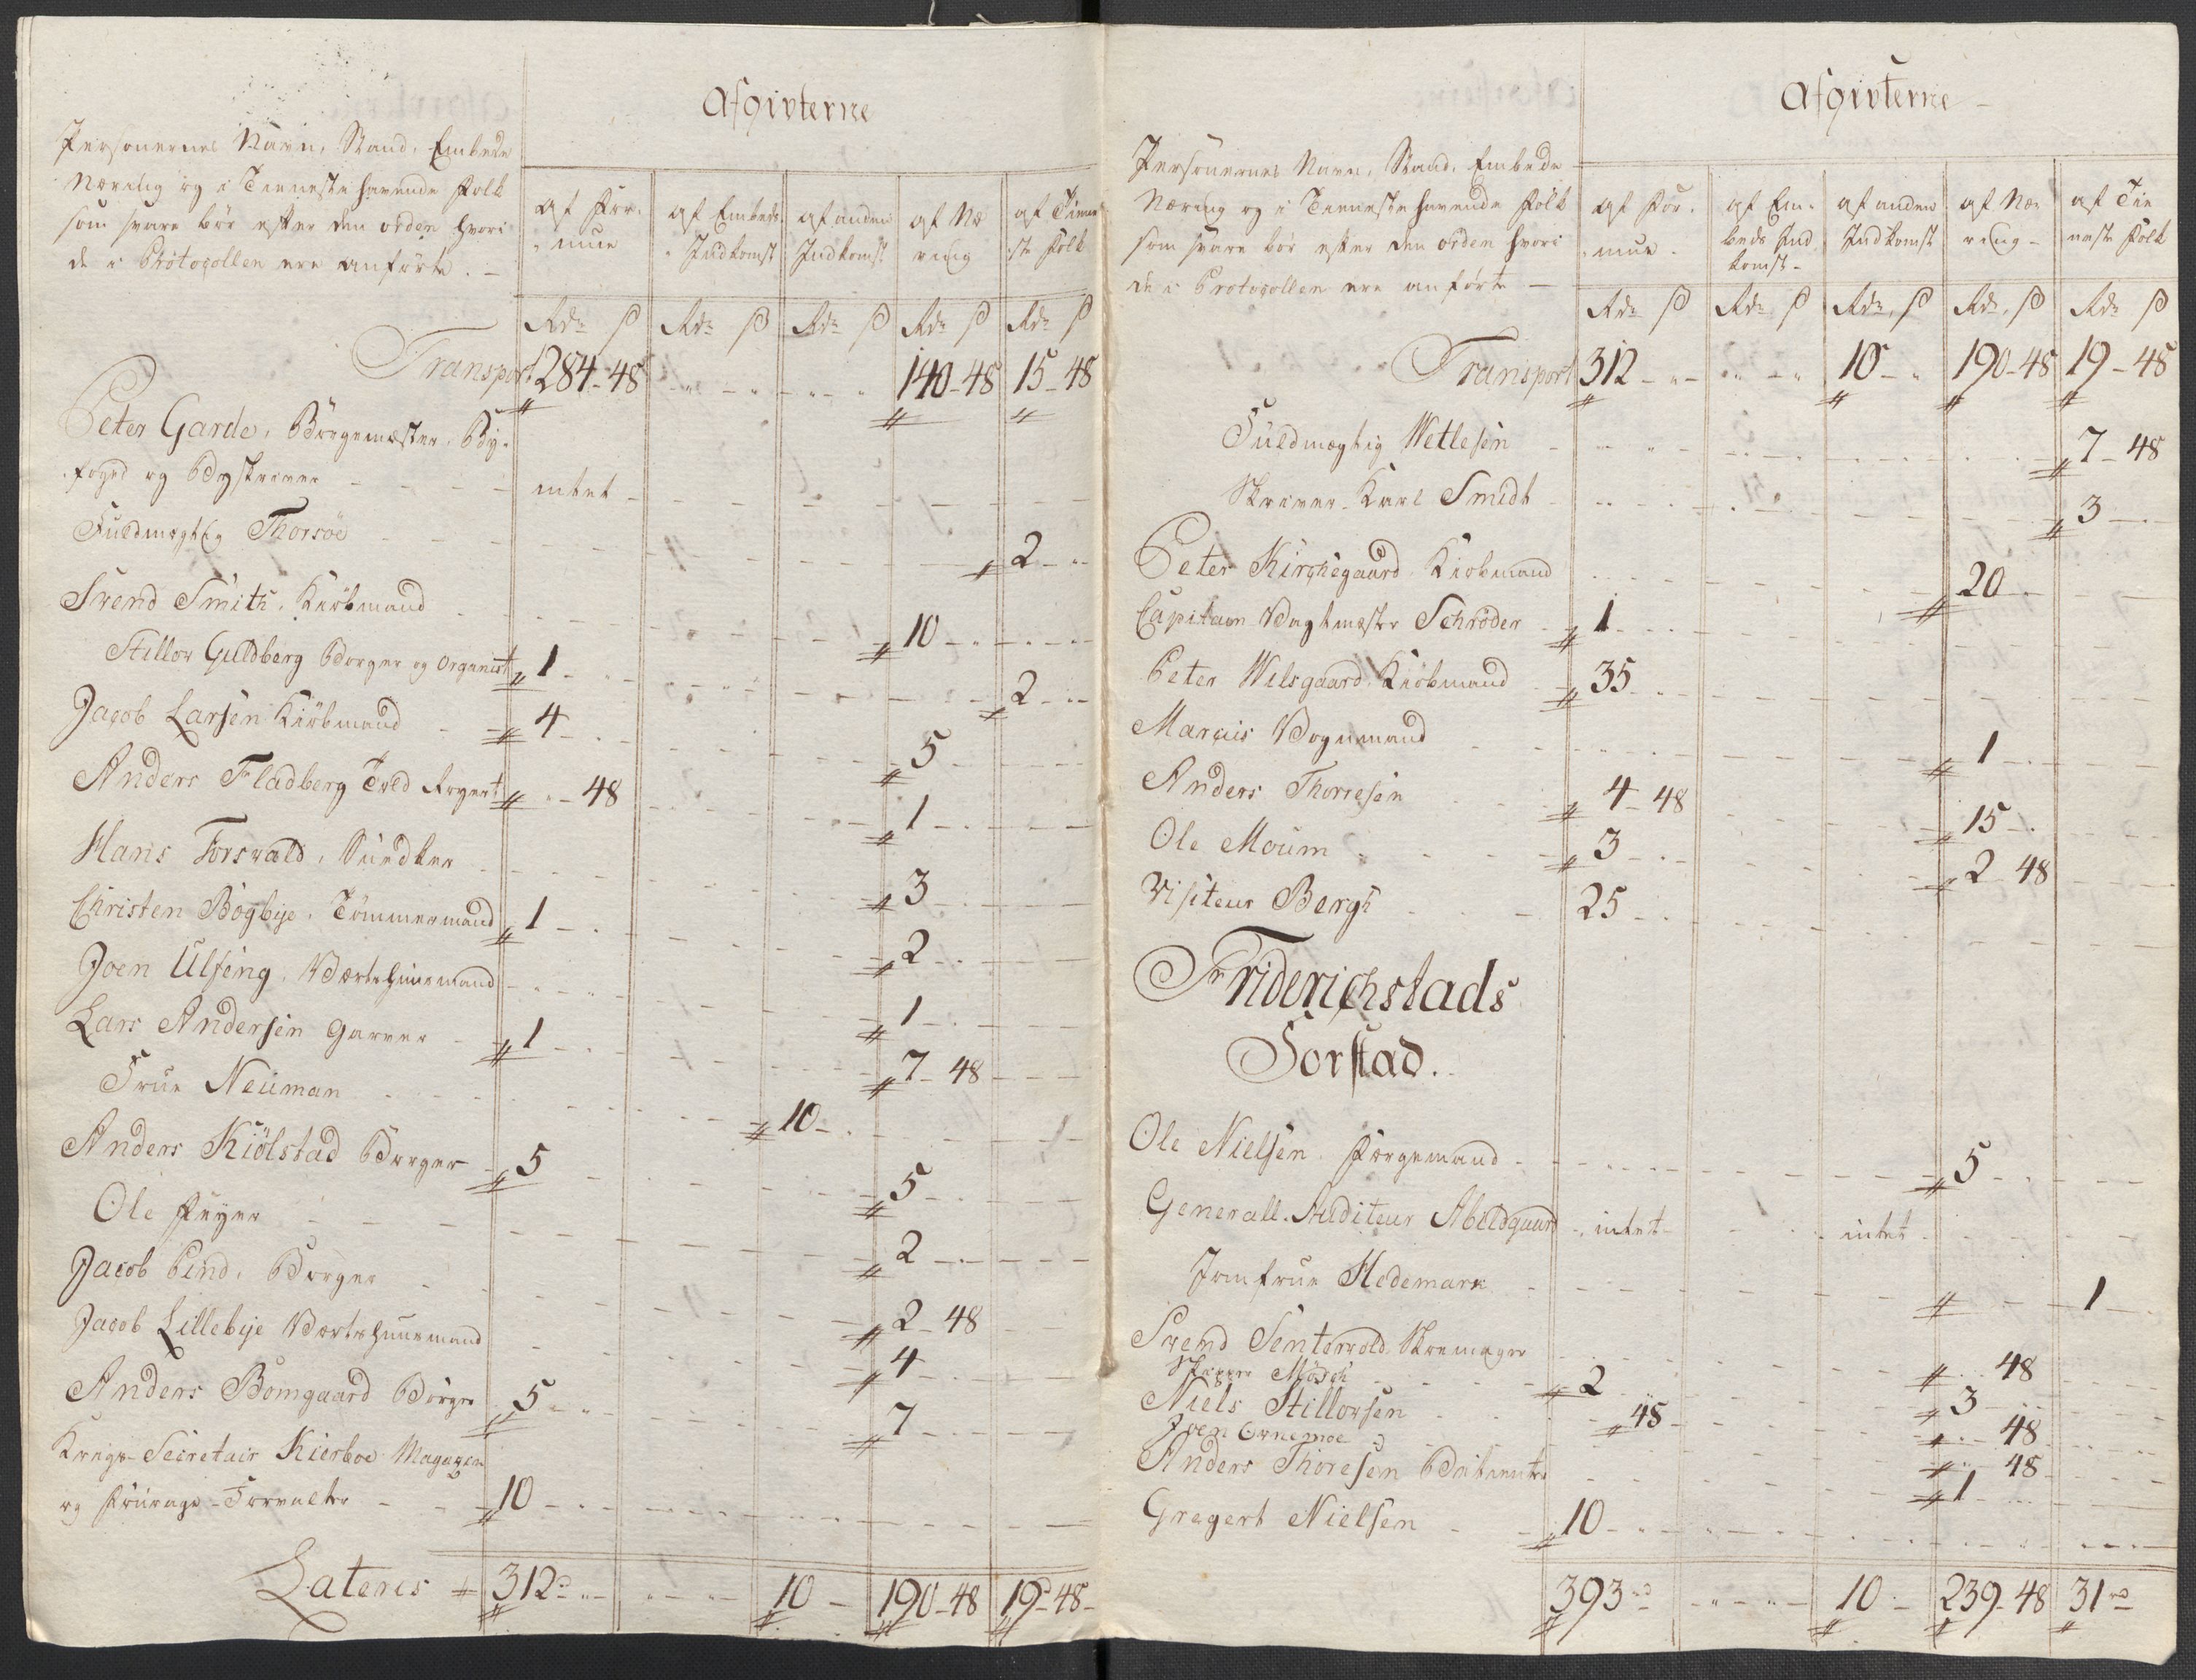 Afgivterne
Personernes Navn, Stand, Embede
Næring og i Tieneste havende Folk
som svare bör efter den orden hvori
de i Protocollen ere anförte. -
af For-
mue
af Embeds
Indkomst
af anden
Indkomst
af Næ
ring
af Tiene
ste Folk
Rdr ß Rdr ß Rdr ß Rdr ß Rdr ß
Transport 284-48 140-48 15-48
Peter Garde, Borgemester, By-
foged og Byskriver intet
Fuldmegtig Thorsöe 2
Svend Smith, Kiöbmand 10
Stillov Guldberg Borger og Organist 1 2
Jacob Larsen Kiöbmand 4 5
Anders Fladberg Told 48 1
Hans Forsvald, Snedker 3
Christen Bogbye, Tömmermand 1 2
Joen Ulfeng, Vertshuusmand 1
Lars Andersen Garver 1 7-48
Frue Neuman 10
Anders Kiölstad Borger 5 5
Ole 2
Jacob Lind, Borger 2-48
Jacob Lillebye Vertshuusmand 4
Anders Bomgaard Borger 5 7
Krigs-Secretair Kierboe Magazin
og Fourage-Forvalter 10
Lateris 312 10 190-48 19-48
Afgivterne
Personernes Navn, Stand, Embede
Næring og i Tieneste havende Folk
som svare bör efter den orden hvori
de i Protocollen ere anförte -
af For-
mue
af Em-
beds Ind
komst-
af anden
Indkomst
af Næ-
ring-
af Tie
neste Folk
Rdr ß Rdr ß Rdr ß Rdr ß Rdr ß
Transport 312 10 190-48 19-48
Fuldmægtig Wetlesen 7-48
Skriver Karl Smidt 3
Peter Kirchegaard Kiobmand 20
Capitain Vagtmester Schröder 1
Peter Welsgaard Kiöbmand 35
Marcus Vognmand 1
Anders Thorresen 4-48 15
Ole Moum 3 2-48
Visiteur Bergh 25
Friderichstads
Forstad.
Ole Nielsen Færgemand 5
Generall-Auditeur Abildgaard intet intet
Jomfrue Hedemark 1
Svend Sentervold Skomager 48
Skipper Mösch 2
Niels Stillorsen 3
Joen Ornemoe 48 48
Anders Thoresen 48
1
Gregert Nielsen 10
393 10 239-48 31